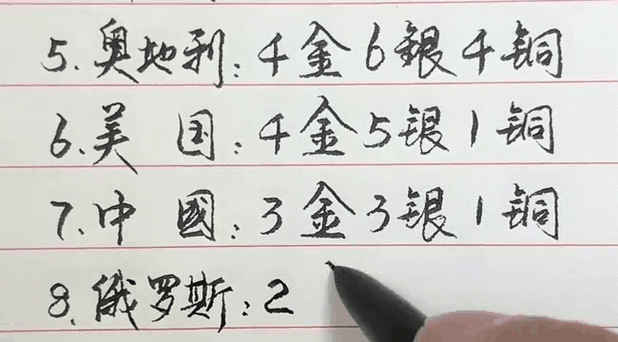 5.奥地利:4金6銀4铜
6.美国:4金5银1铜
7.中國:3金3银1铜
8.俄罗斯:2